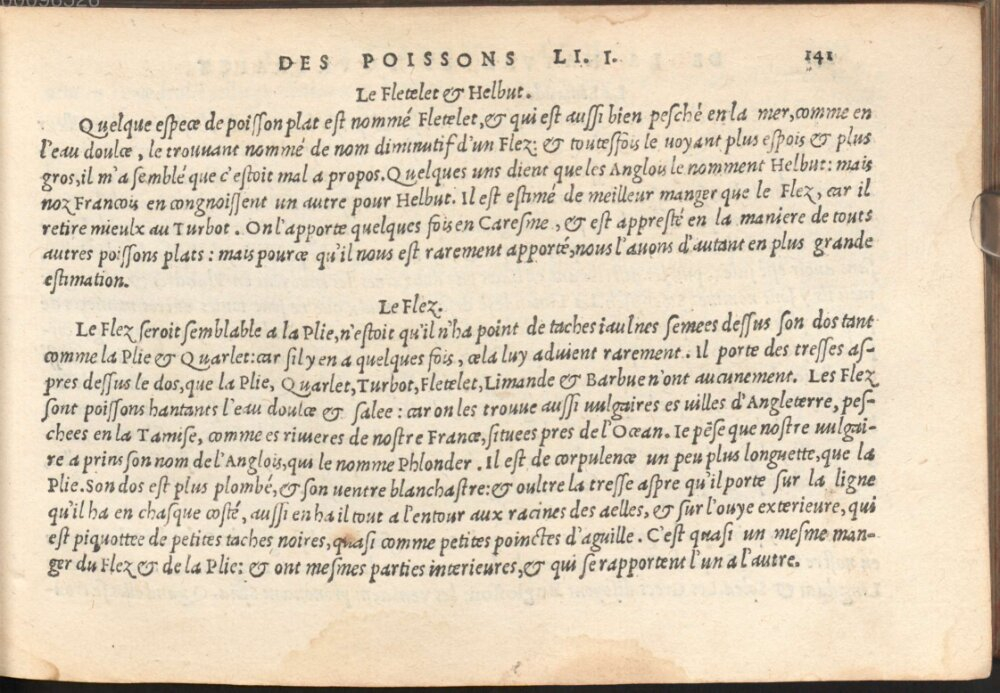 DES POISSONS LI. I. 141
Le Fletelet & Helbut.
Quelque espece de poisson plat est nommé Fletelet, & qui est aussi bien pesché en la mer, comme en
l'eau doulce, le trouvant nommé de nom diminutif d'un Flez: & toutesfois le voyant plus espois & plus
gros, il m'a semblé que c'estoit mal a propos. Quelques uns dient que les Anglois le nomment Helbut: mais
noz Francois en congnoissent un autre pour Helbut. Il est estimé de meilleur manger que le Flez, car il
retire mieulx au Turbot. On l'apporte quelques fois en Caresme, & est appresté en la maniere de touts
autres poissons plats: mais pource qu'il nous est rarement apporté, nous l'auons d'autant en plus grande
estimation.
Le Flez.
Le Flez seroit semblable a la Plie, n'estoit qu'il n'ha point de taches iaulnes semees dessus son dos tant
comme la Plie & Quarlet: car s'il y en a quelques fois, cela luy aduient rarement. Il porte des tresses as-
pres dessus le dos, que la Plie, Quarlet, Turbot, Fletelet, Limande & Barbue n'ont aucunement. Les Flez
sont poissons hantants l'eau doulce & salee: car on les trouue aussi vulgaires es uilles d'Angleterre, pes-
chees en la Tamise, comme es riuieres de nostre France, situees pres de l'Ocean. Ie pẽse que nostre uulgai-
re a prins son nom de l'Anglois, qui le nomme Phlonder. Il est de corpulence un peu plus longuette, que la
Plie. Son dos est plus plombé, & son uentre blanchastre: & oultre la tresse aspre qu'il porte sur la ligne
qu'il ha en chasque costé, aussi en ha il tout a l'entour aux racines des aelles, & sur l'ouye exterieure, qui
est piquottee de petites taches noires, quasi comme petites poinctes d'aguille. C'est quasi un mesme man-
ger du Flez & de la Plie: & ont mesmes parties interieures, & qui se rapportent l'un a l'autre.